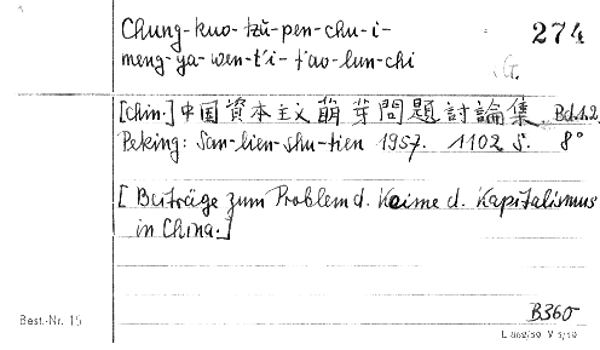 Chung-kuo-tzŭ-pen-chu-i-
274
meng-ya-wen-t'i-t'ao-lun-chi
G.
[Chin.] 中国資本主义萌芽問題討論集. Bd.1.2
Peking: San-lien-shu-tien 1957. 1102 S. 8°
[Beiträge zum Problem d. Keime d. Kapitalismus
in China.]
B360
Best.-Nr. 15